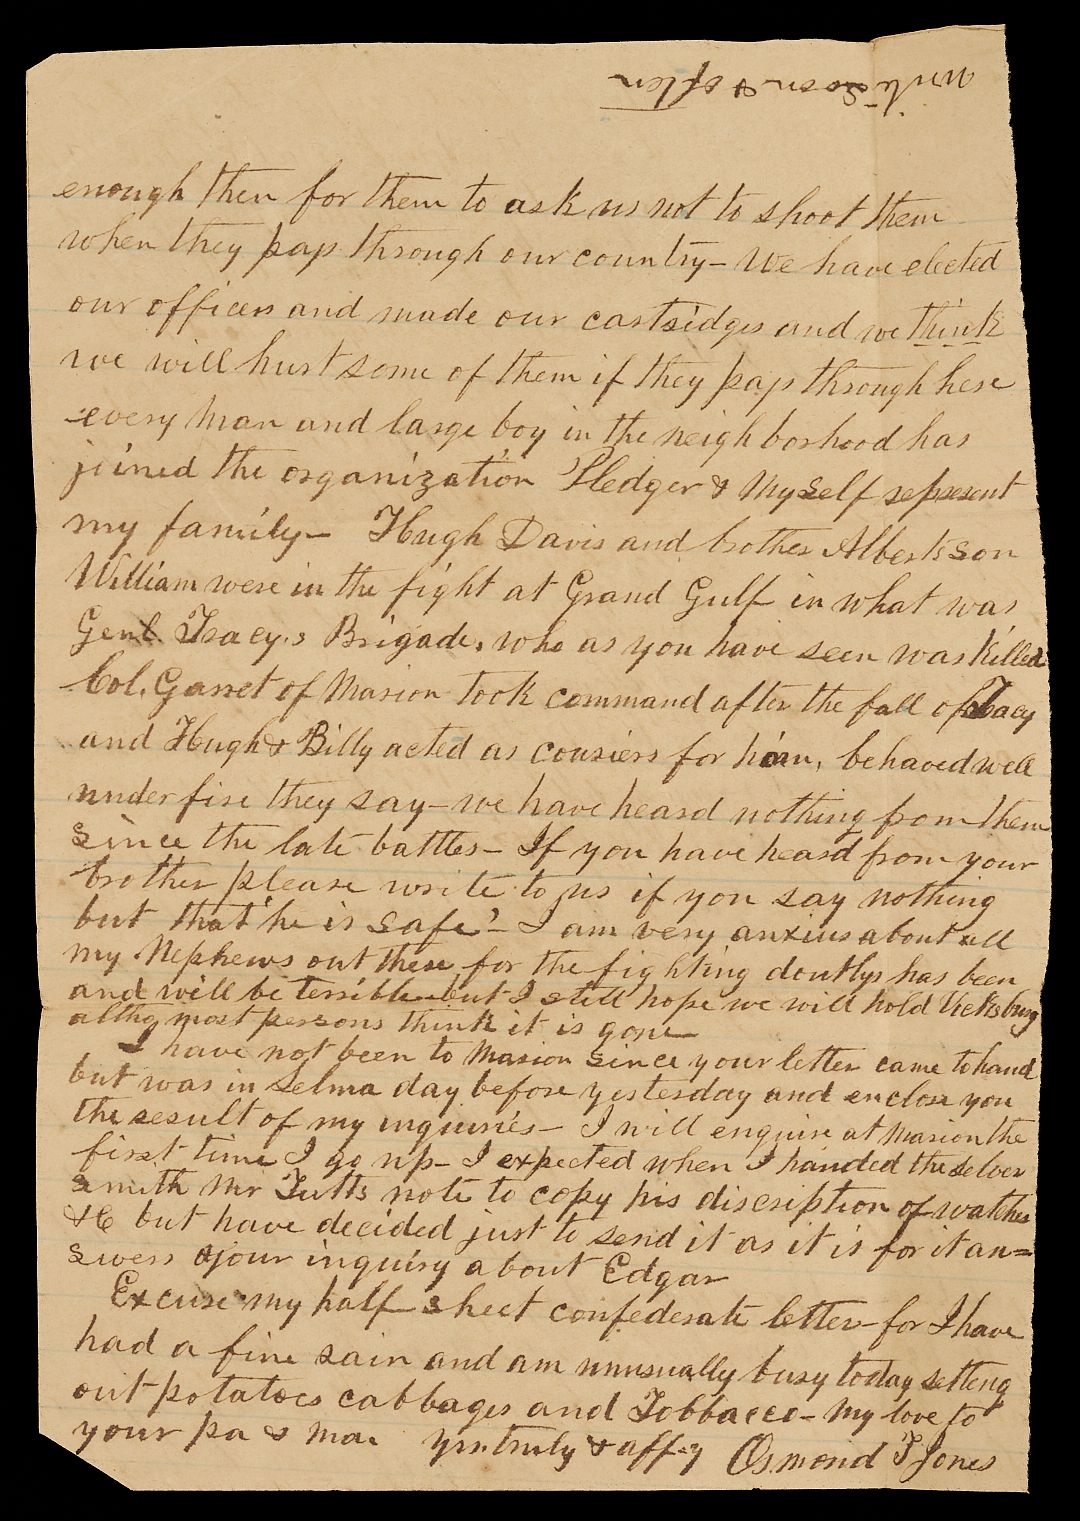 write soon & often
enough then for them to ask us not to shoot them
when they pass through our country - We have elected
our officers and made our cartridges and we think
we will hurt some of them if they pass through here
every man and large boy in the neighborhood has
joined the organization Pledger & Myself represent
my family - Hugh Davis and brother Alberts son
William were in the fight at Grand Gulf in what was
Genl. Tracy's Brigade, who as you have seen was killed
Col. Garret of Marion took command after the fall of Tracy
and Hugh & Billy acted as couriers for him, behaved well
under fire they say - we have heard nothing from them
since the late battles - If you have heard from your
brother please write to us if you say nothing
but that "he is safe" - I am very anxius about all
my Nephews out there, for the fighting doutlys has been
and will be terrible - but I still hope we will hold Vicksburg
altho most persons think it is gone
I have not been to Marion since your letter came to hand
but was in Selma day before yesterday and enclose you
the result of my inquiries - I will enquire at Marion the
first time I go up - I expected when I handed the silver
smith Mr Tutts note to copy his discription of watches
&c but have decided just to send it as it is for it an=
swers your inquiry about Edgar
Excuse my half sheet confederate letter - for I have
had a fine rain and am unusually busy today setting
out potatoes cabbages and Tobbacco - My love to
your pa & ma yrs. truly & affy Osmond T Jones